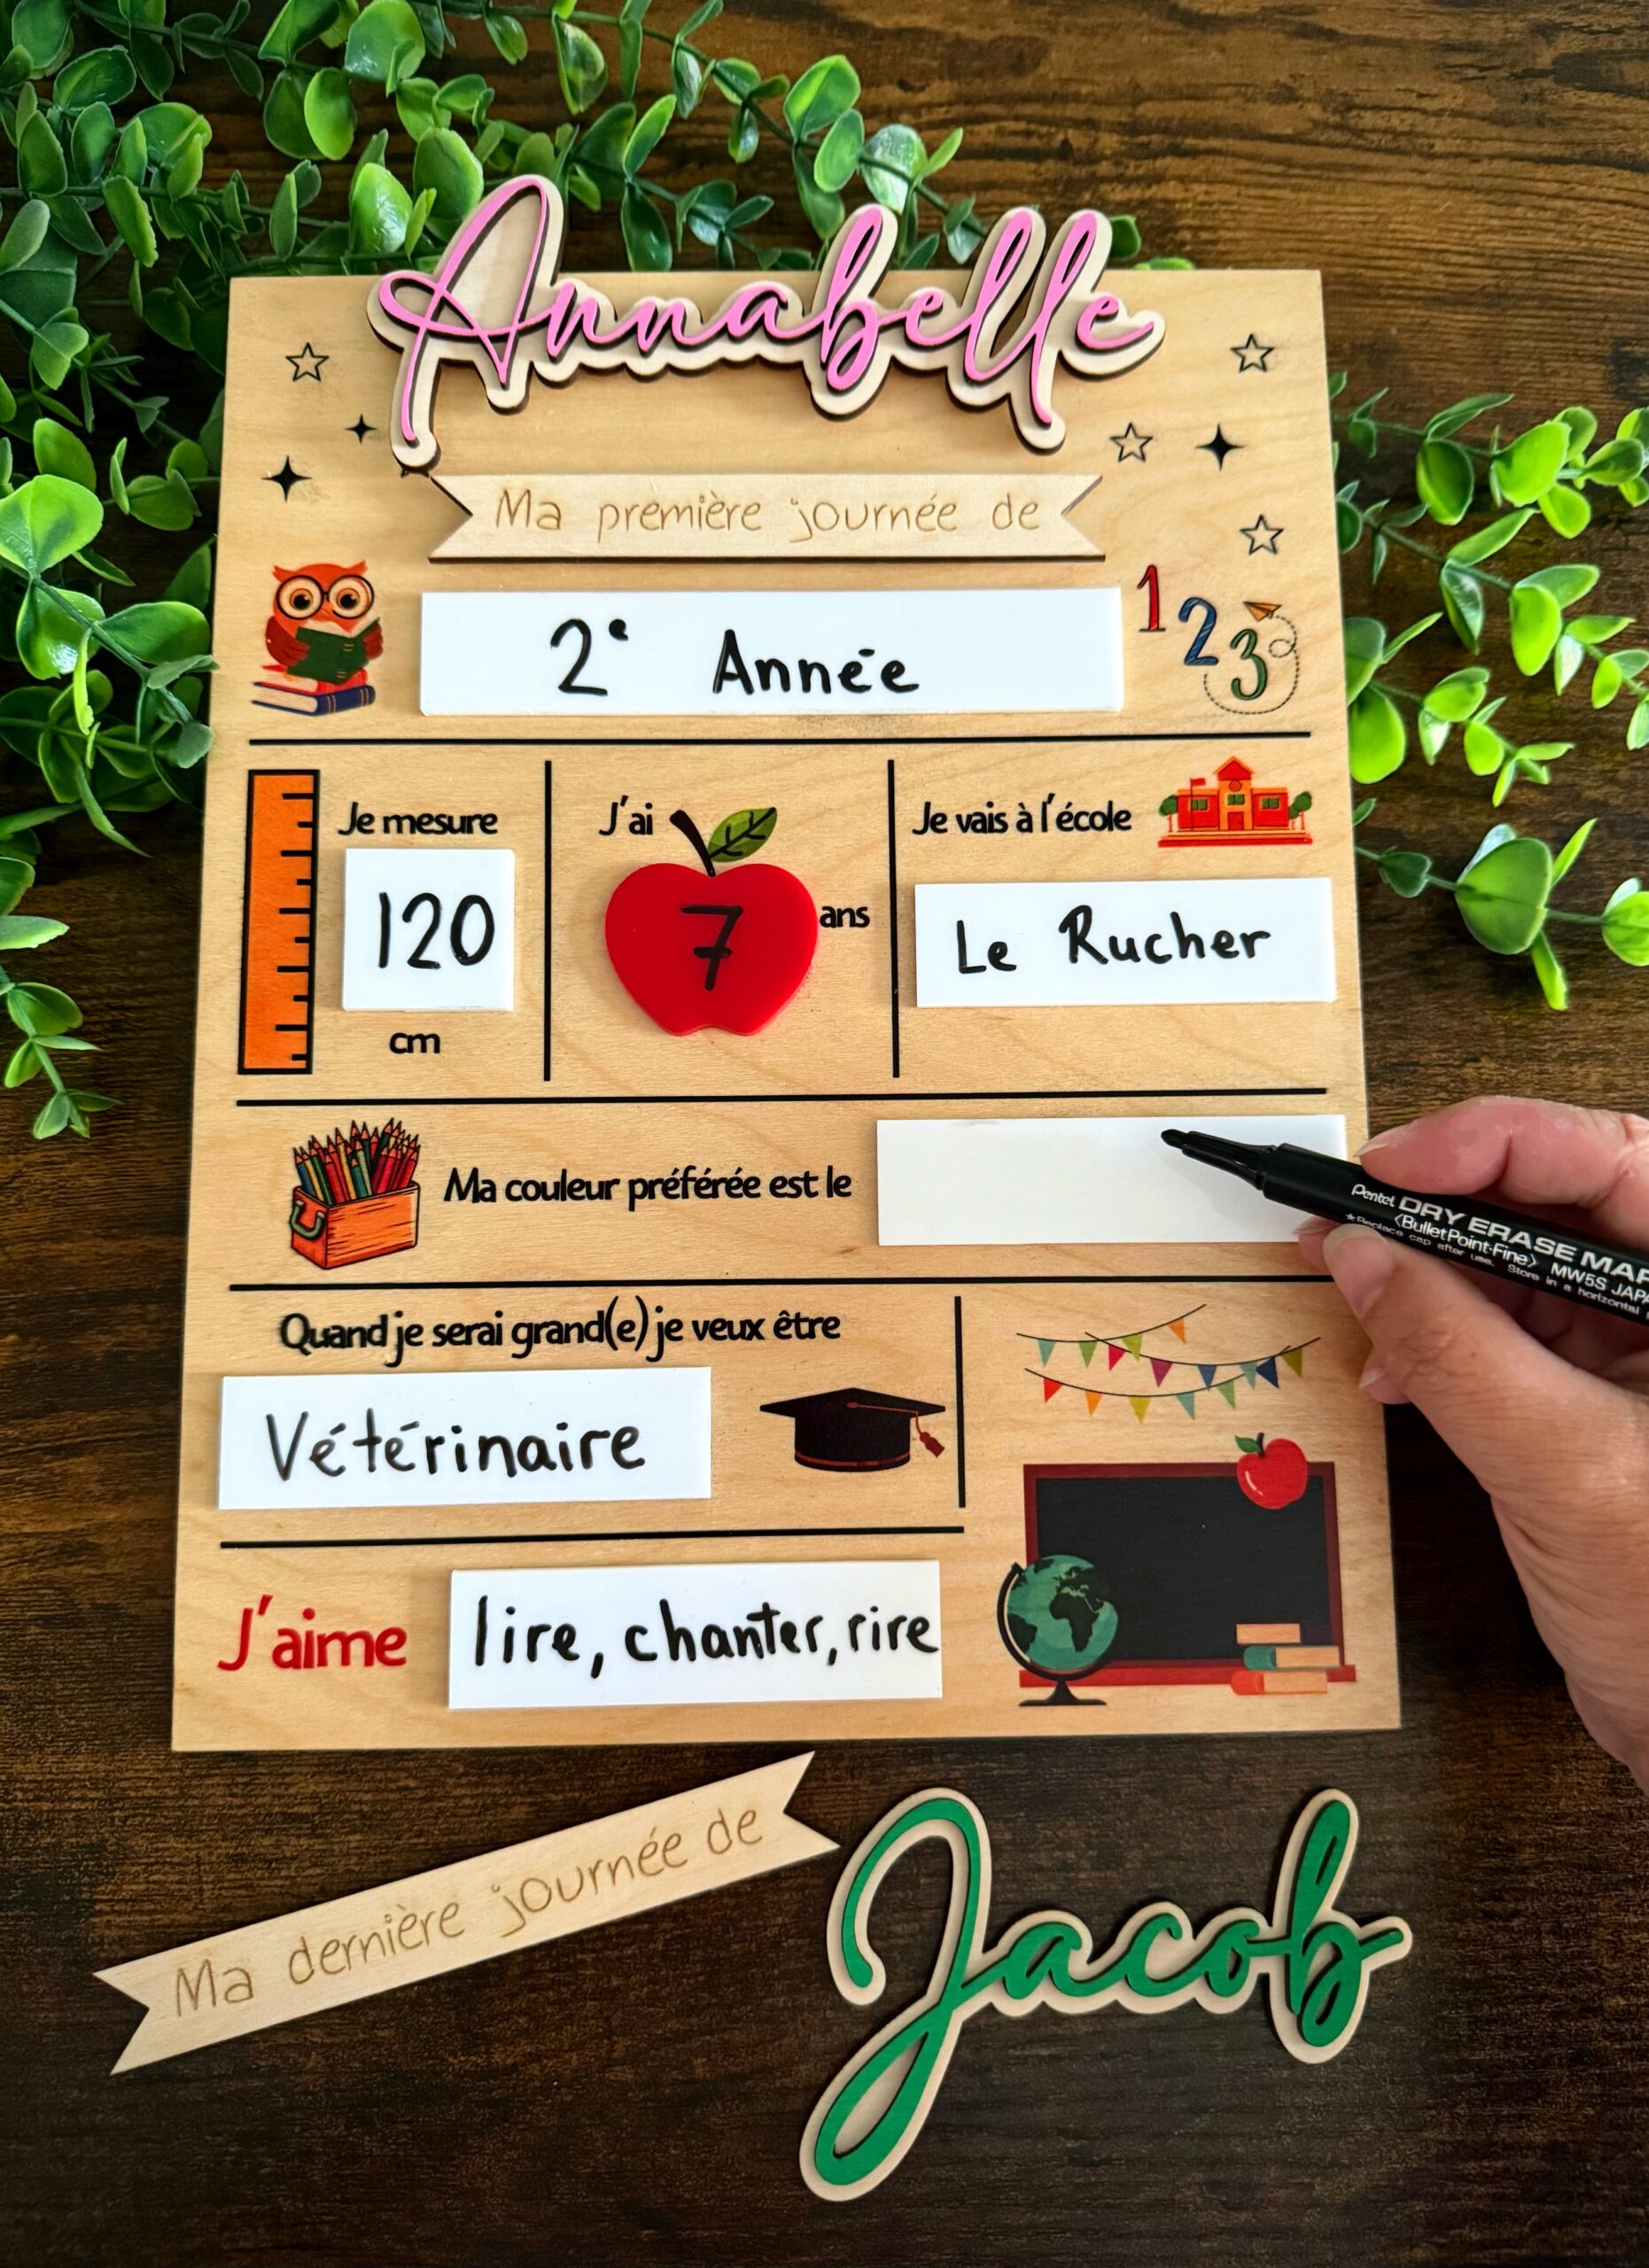 Annabelle
Ma première journée de
2e Année
1 2 3
Je mesure
120
cm
J'ai
7
ans
Je vais à l'école
Le Rucher
Ma couleur préférée est le
Pentel DRY ERASE MAR
<Bullet Point·Fine> MW5S JAPA
*Replace cap after use. Store in a horizontal
Quand je serai grand(e) je veux être
Vétérinaire
J'aime
lire, chanter, rire
Ma dernière journée de
Jacob